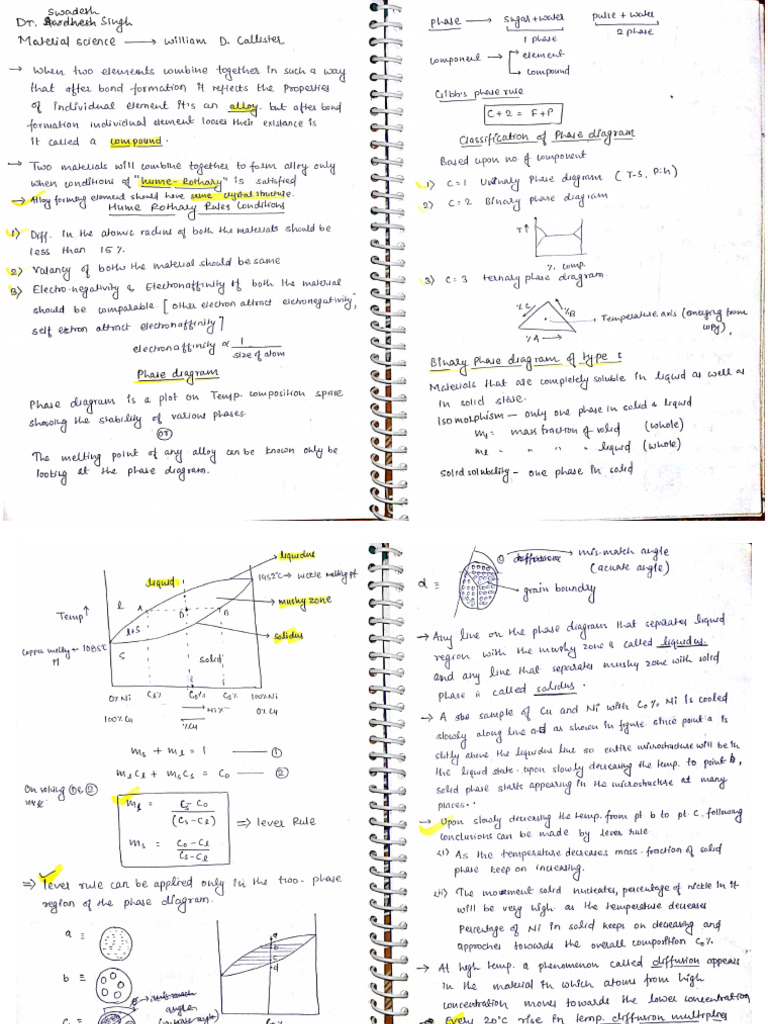 Swadesh
Dr. Aardhesh Singh
Material science → William D. Callister
→ When two elements combine together in such a way
that after bond formation it reflects the Properties
of individual element it's an alloy. but after bond
formation individual element looses their existance is
it called a compound.
→ Two materials will combine together to form alloy only
when conditions of "hume-Rothary" is satisfied
→ Alloy forming element should have same crystal structure.
Hume Rothary Rules Conditions
1) Diff. in the atomic radius of both the materials should be
less than 15%.
2) Valancy of both the material should be same
3) Electro-negativity & Electronaffinity of both the material
should be comparable. [other electron attract elctronegativity,
self elctron attract electronaffinity]
electronaffinity ∝ 1
size of atom
Phase diagram
Phase diagram is a plot on Temp. composition space
showing the stability of various phases.
or
The melting point of any alloy can be known only be
looking at the phase diagram.
phase → sugar+water pulse + water
1 phase 2 phase
component → element
compound
Gibb's phase rule
C+2 = F+P
Classification of Phase diagram
Based upon no of component
1) C=1 Uninary Phase diagram (T-S, P-h)
2) C=2 Binary phase diagram
T↑
% comp.
3) C=3 ternary phase diagram.
%C %B
→ Temperature axis (emerging from
copy)
%A →
Binary phase diagram of type I
Materials that are completely soluble in liquid as well as
in solid state.
Isomorphism — only one phase in solid & liquid
ms = mass fraction of solid (whole)
ml = " " " liquid (whole)
solid solubility - one phase in solid
liquidus
liquid
1452°C → nickle melting pt
mushy zone
l A D B
Temp↑
l+S
solidus
copper melting pt ← 1085°C
S
solid
0% Ni Cl% C0% Cs% 100% Ni
100% Cu 0% Cu
→ Ni%
% Cu
ms + ml = 1 — ①
mlCl + msCs = C0 — ②
On solving ① & ②
we get
ml = Cs - C0
(Cs - Cl)
⇒ lever Rule
ms = C0 - Cl
Cs - Cl
⇒ lever rule can be applied only in the two-phase
region of the phase diagram.
a ≡
b ≡
a
b
c
d
d ≡
θ → mis-match angle
(acute angle)
→ grain boundry
→ Any line on the phase diagram that separates liquid
region with the mushy zone is called liquidus.
and any line that separates mushy zone with solid
phase is called solidus.
→ A sample of Cu and Ni with C0% Ni is cooled
slowly along line ad as shown in figure. since point a is
slitly above the liquidus line so entire microstructure will be in
the liquid state. upon slowly decresing the temp. to point b,
solid phase starts appearing in the microstructure at many
places.
→ Upon slowly decresing the temp. from pt. b to pt. c. following
conclusions can be made by lever rule
(i) As the temperature decreases mass-fraction of solid
phase keep on increasing.
(ii) The movement solid nucleates, percentage of nickle in it
will be very high as the temperature decreases
Percentage of Ni in solid keeps on decreasing and
approches towards the overall composition C0%.
→ At high temp. a phenomenon called diffusion appears
in the material in which atoms from high
concentration moves towards the lower concentration
Every 20°C rise in temp. diffusion multiplies